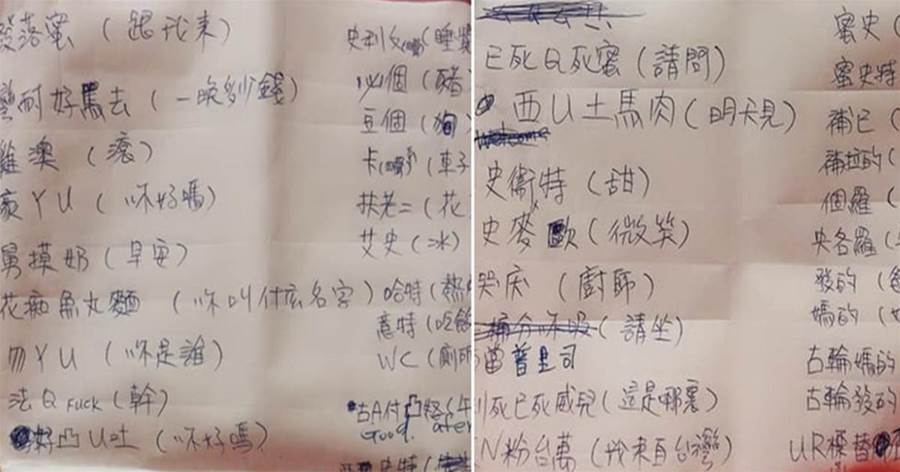 落蜜（跟我来）
耐好馬去（一晚多少錢）
雞澳（滾）
豪ㄚU（你好嗎）
舅摸奶（早安）
花痴魚丸麵（你叫什么名字）
勿ㄚU（你是誰）
法Q FUCK（幹）
好凸U吐（你好嗎）
史利（睡覺
必個（豬
豆個（狗
卡（車子
扶老二（花
艾史（冰）
哈特（熱
意特（吃飯
WC（廁所
古A付
Good after
史特
已死Q死蜜（請問）
西U土馬肉（明天見）
welcome
史衞特（甜）
史麥歐（微笑）
哭庆（廚師）
（請坐）
普里司
死已死威兒（這是哪裏）
N粉台萬（我來自台灣）
蜜史（
蜜史特
補已（
補拉的（
個羅（
央各羅（
發的（爸
媽的（
古輪媽的
古輪發的
UR樣替